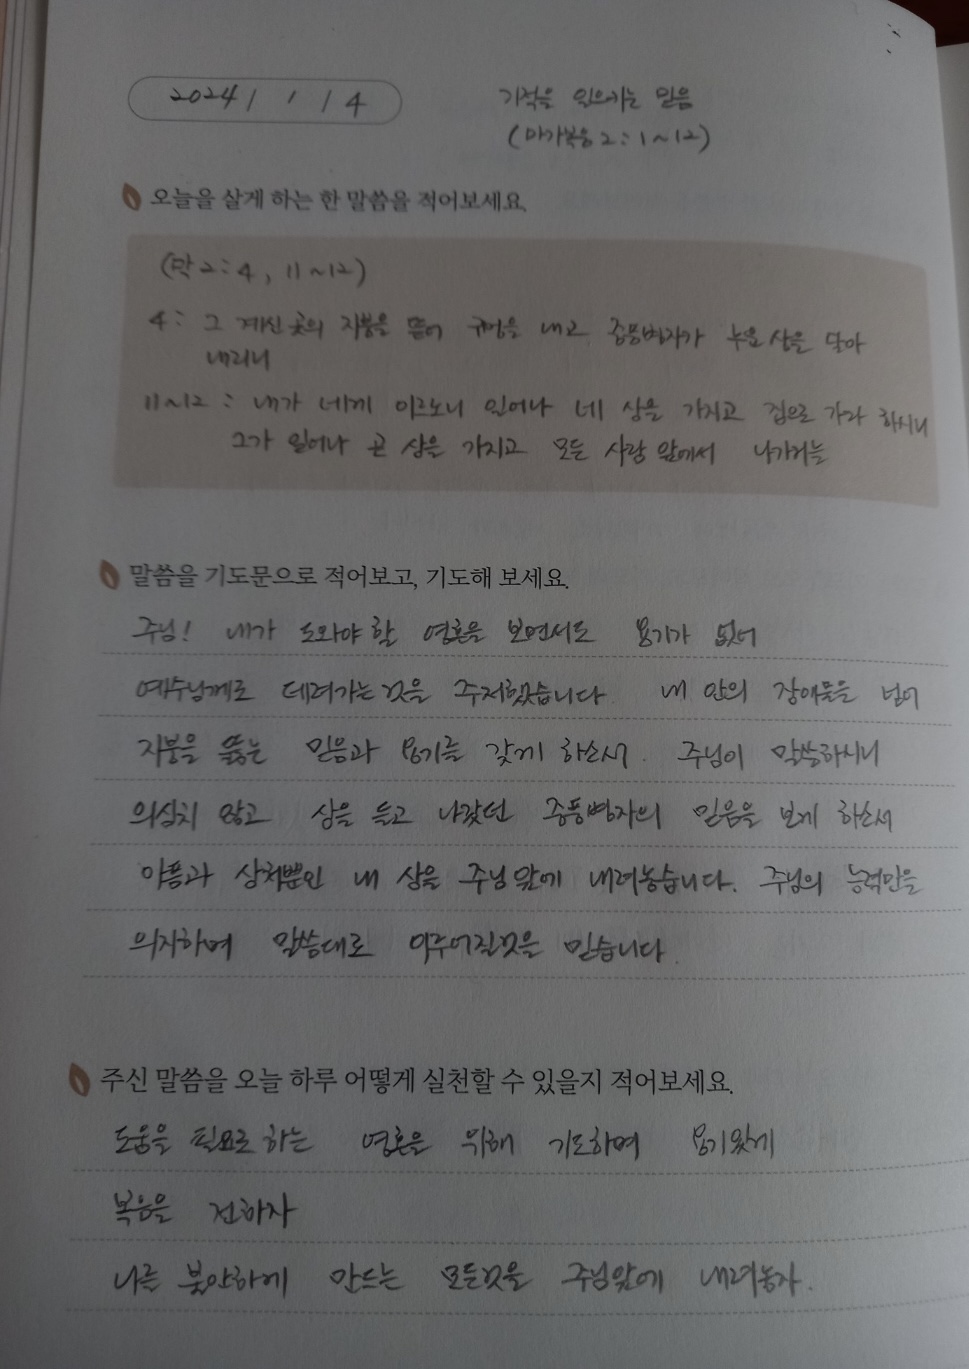 2024 / 1 / 4
기적을 일으키는 믿음
(마가복음 2:1~12)
오늘을 살게 하는 한 말씀을 적어보세요.
(막 2:4, 11~12)
4: 그 계신 곳의 지붕을 뜯어 구멍을 내고 중풍병자가 누운 상을 달아
내리니
11~12: 내가 네게 이르노니 일어나 네 상을 가지고 집으로 가라 하시니
그가 일어나 곧 상을 가지고 모든 사람 앞에서 나가거늘
말씀을 기도문으로 적어보고, 기도해 보세요.
주님! 내가 도와야 할 영혼을 보면서도 용기가 없어
예수님께로 데려가는 것을 주저했습니다. 내 안의 장애물을 넘어
지붕을 뚫는 믿음과 용기를 갖게 하소서. 주님이 말씀하시니
의심치 않고 상을 들고 나갔던 중풍병자의 믿음을 보게 하소서
아픔과 상처뿐인 내 상을 주님 앞에 내려놓습니다. 주님의 능력만을
의지하며 말씀대로 이루어질것을 믿습니다.
주신 말씀을 오늘 하루 어떻게 실천할 수 있을지 적어보세요.
도움을 필요로 하는 영혼을 위해 기도하며 용기있게
복음을 전하자
나를 불안하게 만드는 모든것을 주님앞에 내려놓자.